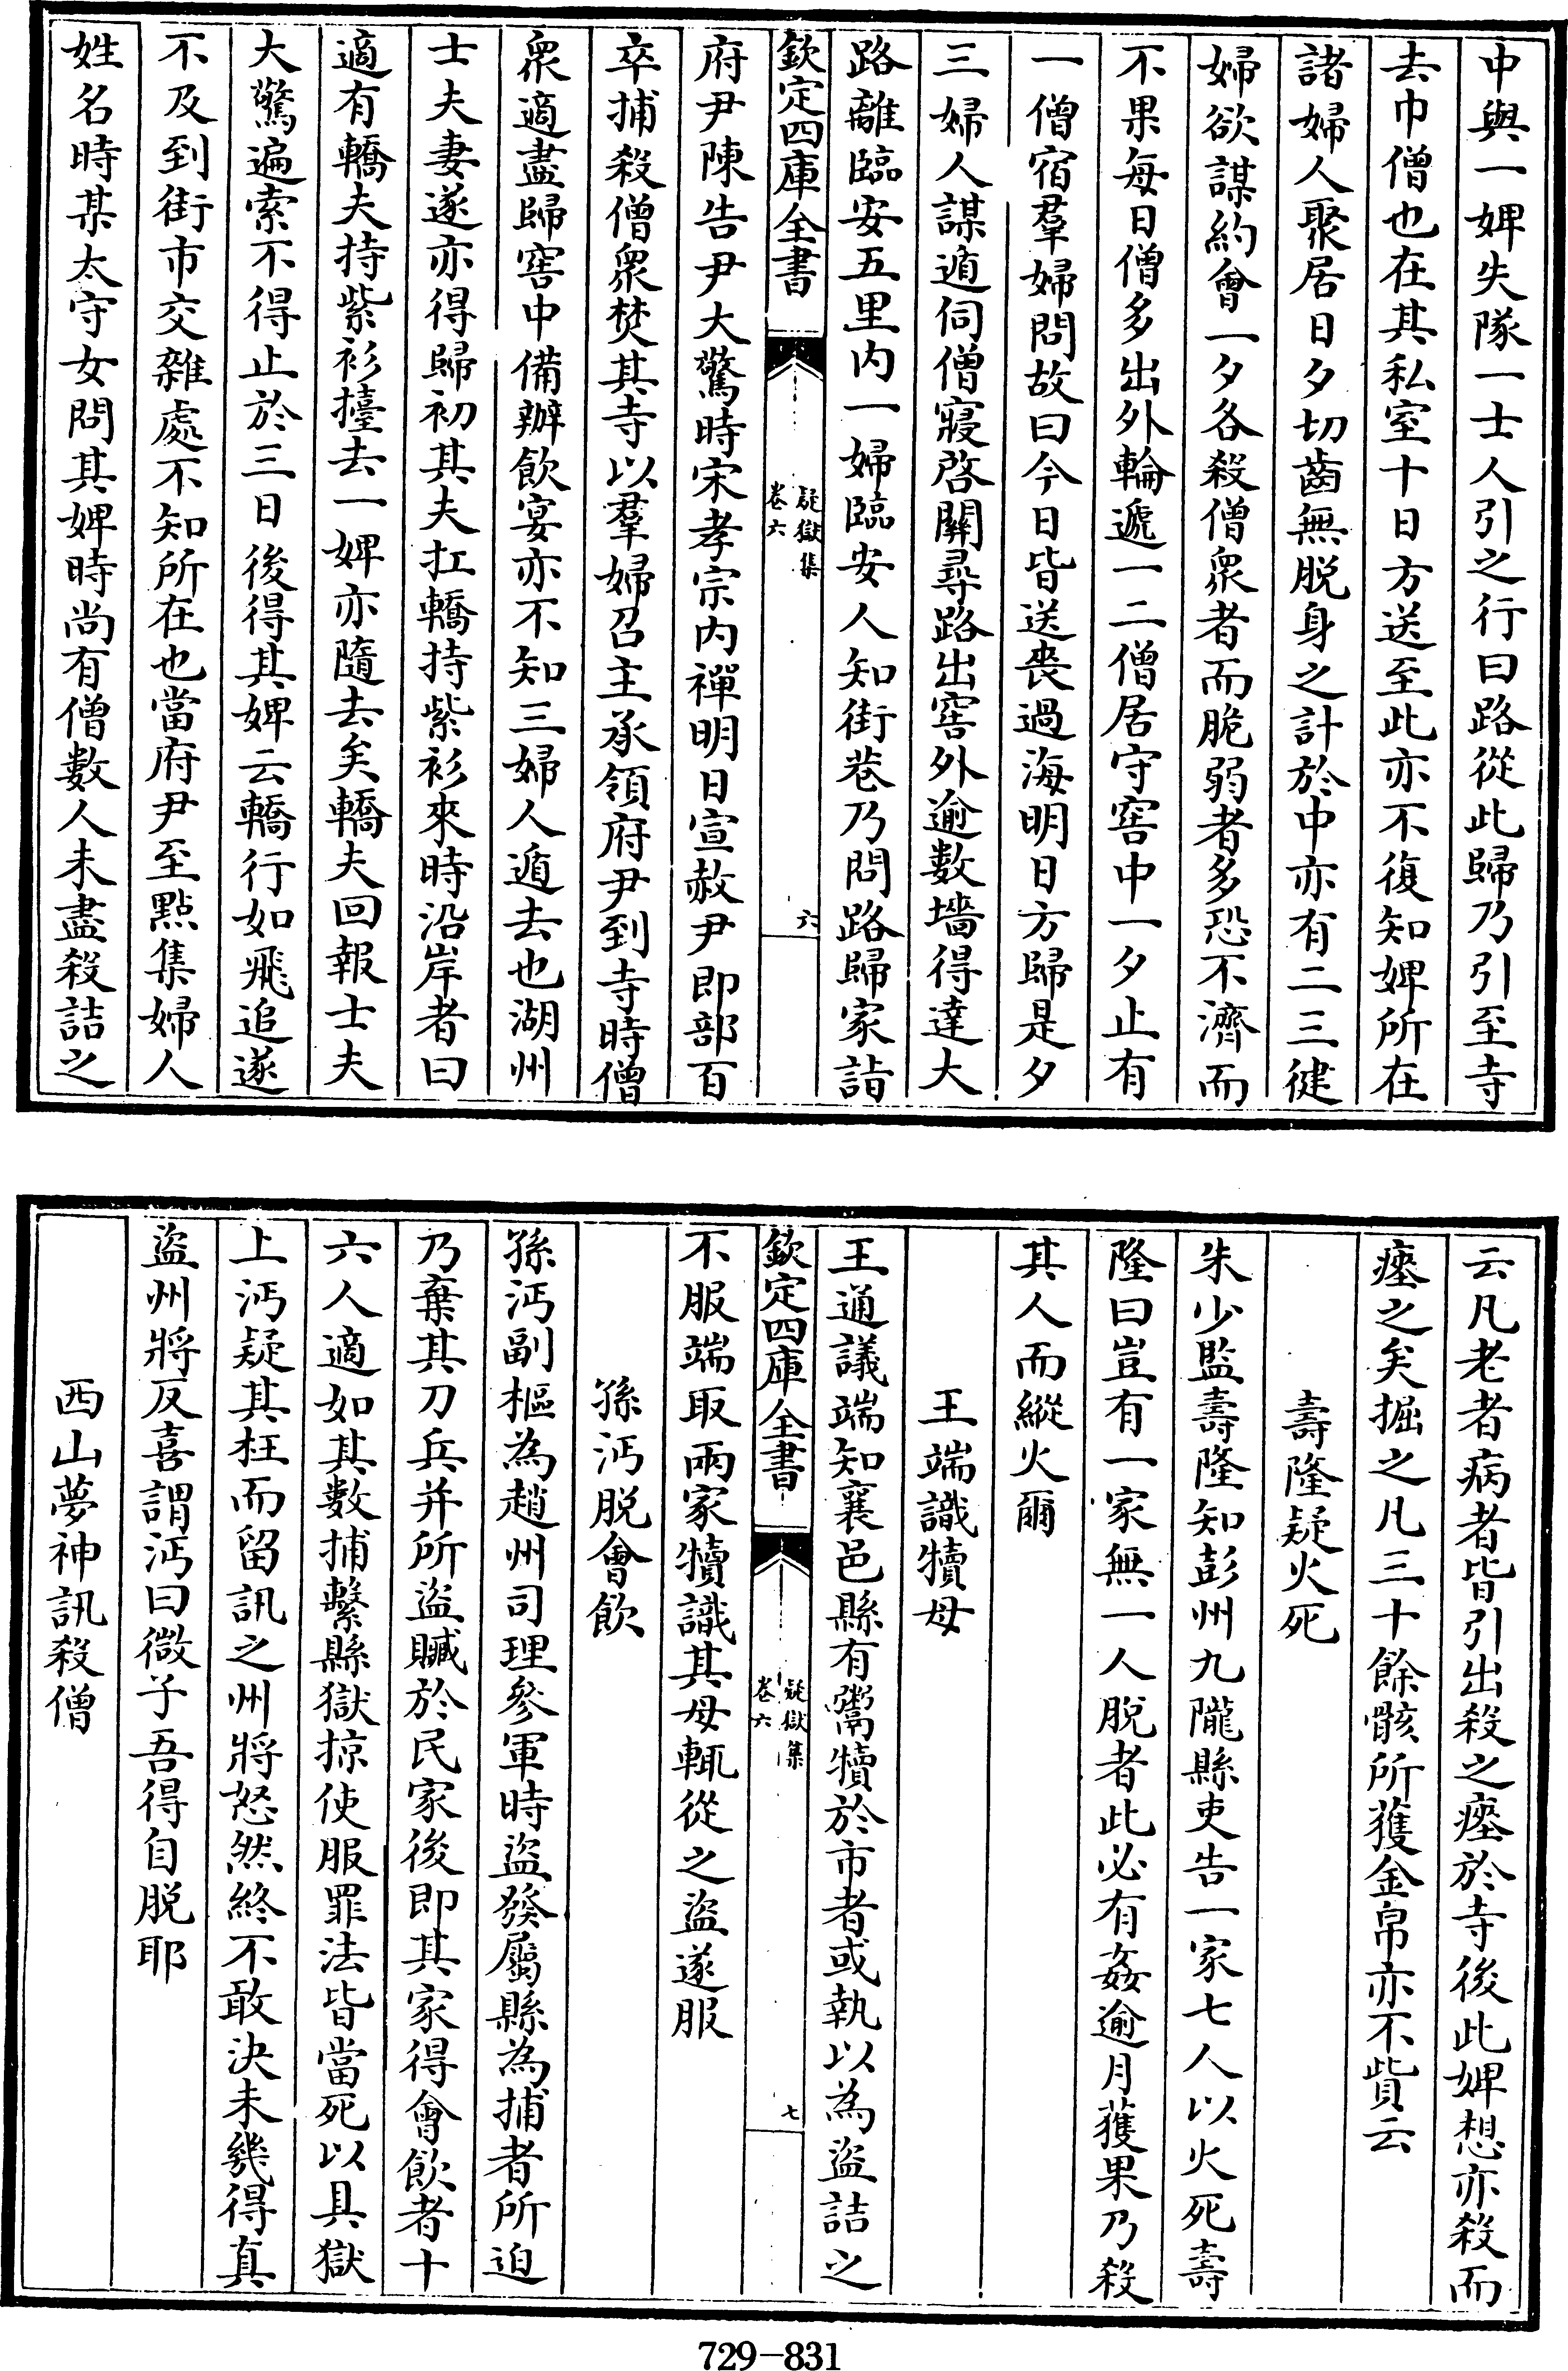 中與一婢失隊一士人引之行曰路從此歸乃引至寺
去巾僧也在其私室十日方送至此亦不復知婢所在
諸婦人聚居日夕切齒無脱身之計於中亦有二三健
婦欲謀約會一夕各殺僧衆者而脆弱者多恐不濟而
不果每日僧多出外輪遞一二僧居守窖中一夕止有
一僧宿羣婦問故曰今日皆送喪過海明日方歸是夕
三婦人謀遁伺僧寢啓關尋路出窖外逾數墻得達大
路離臨安五里内一婦臨安人知街巷乃問路歸家詣
欽定四庫全書
疑獄集
卷六
六
府尹陳告尹大驚時宋孝宗内禪明日宣赦尹即部百
卒捕殺僧衆焚其寺以羣婦召主承領府尹到寺時僧
衆適盡歸窖中備辦飲宴亦不知三婦人遁去也湖州
士夫妻遂亦得歸初其夫扛轎持紫衫來時沿岸者曰
適有轎夫持紫衫擡去一婢亦隨去矣轎夫回報士夫
大驚遍索不得止於三日後得其婢云轎行如飛追遂
不及到街市交雜處不知所在也當府尹至點集婦人
姓名時某太守女問其婢時尚有僧數人未盡殺詰之
云凡老者病者皆引出殺之瘞於寺後此婢想亦殺而
瘞之矣掘之凡三十餘骸所獲金帛亦不貲云
壽隆疑火死
朱少監壽隆知彭州九隴縣吏告一家七人以火死壽
隆曰豈有一家無一人脱者此必有姦逾月獲果乃殺
其人而縱火爾
王端識犢母
王通議端知襄邑縣有鬻犢於市者或執以為盜詰之
欽定四庫全書
疑獄集
卷六
七
不服端取兩家犢識其母輒從之盜遂服
孫沔脱會飲
孫沔副樞為趙州司理參軍時盜發屬縣為捕者所迫
乃棄其刀兵并所盜贓於民家後即其家得會飲者十
六人適如其數捕繫縣獄掠使服罪法皆當死以具獄
上沔疑其枉而留訊之州將怒然終不敢決未幾得真
盜州將反喜謂沔曰微子吾得自脱耶
西山夢神訊殺僧
729-831